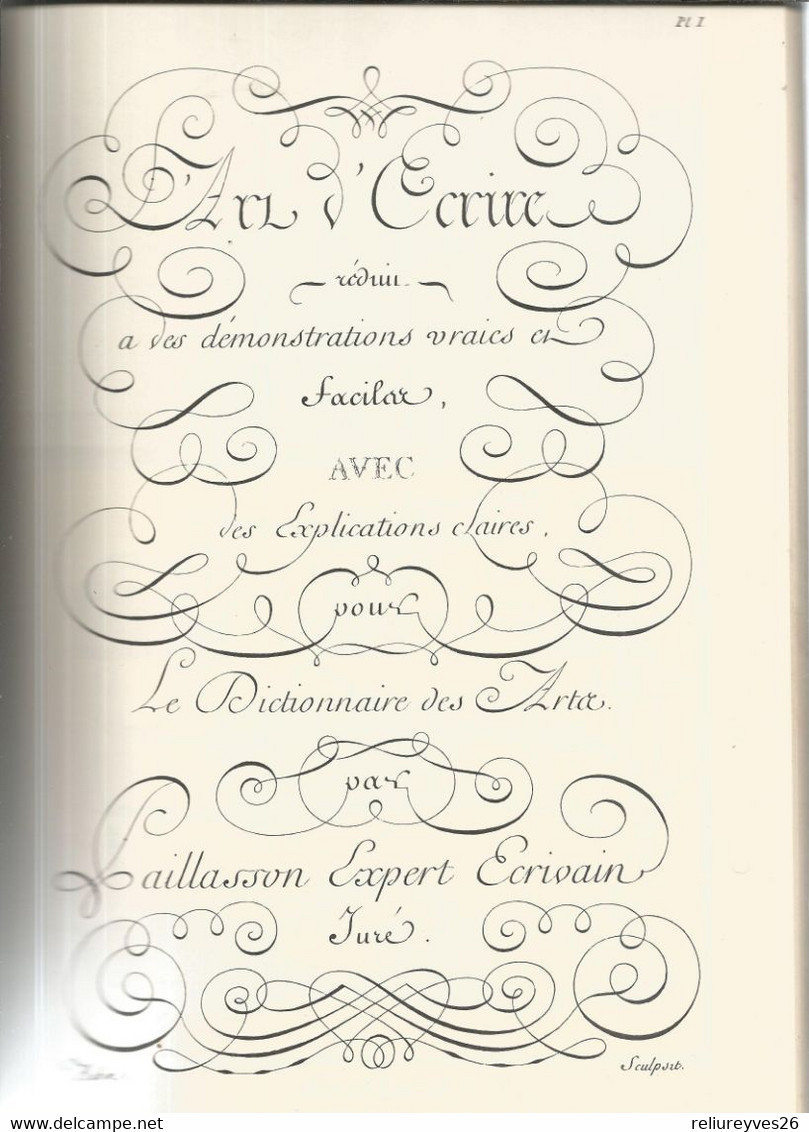 Pl I
L'Art d'Ecrire
réduit
a des démonstrations vraies et
faciles,
AVEC
des Explications claires,
pour
Le Dictionnaire des Arts.
par
Paillasson Expert Ecrivain
Juré.
Sculpsit.
reliureyves26